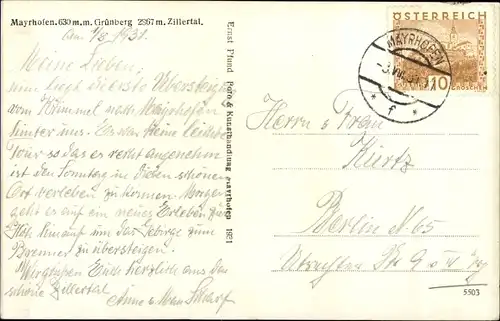 Mayrhofen. 630 m. m. Grünberg 2867 m, Zillertal.
am 1/8 1931.
Meine Lieben,
nun liegt die erste Übersteigung
vom Krimmel nach Mayrhofen
hinter uns. Es war keine leichte
Tour so das es recht angenehm
ist den Sonntag in diesen schönen
Ort verleben zu können. Morgen
geht es auf ein neues Erleben zur
hinauf um das Gebirge zum
Brenner zu übersteigen.
Wir grüßen Euch herzlich aus das
schöne Zillertal
Anna u. Max
Ernst Pfund Foto & Kunsthandlung Mayrhofen 1931
ÖSTERREICH
10
GROSCHEN
MAYRHOFEN
Herrn u. Frau
Kiertz
Berlin N. 65
Utrechter Str. 9
5503